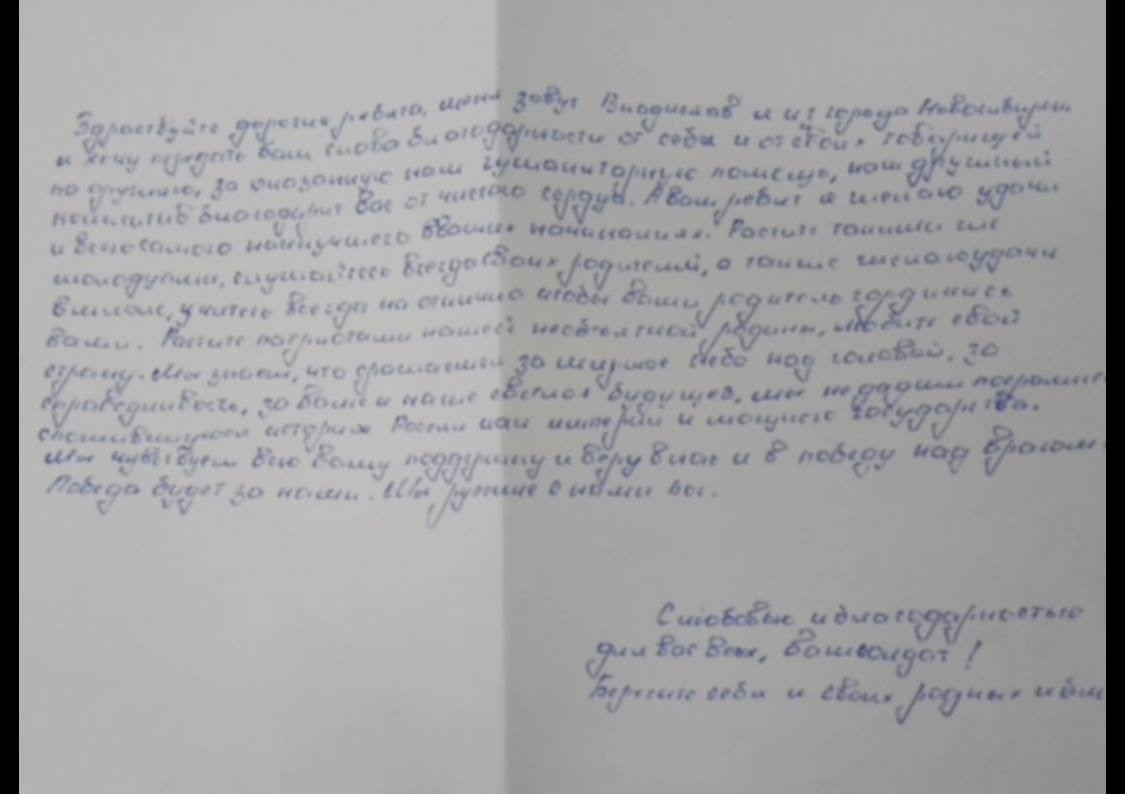 Здравствуйте дорогие ребята, меня зовут Владислав я из города Новосибирск
и хочу передать вам слова благодарности от себя и от своих товарищей
по оружию, за оказанную нам гуманитарную помощь, наш дружный
коллектив благодарит вас от чистого сердца. А вам ребят я желаю удачи
и всего самого наилучшего в ваших начинаниях. Растите такими же
молодцами, слушайтесь всегда своих родителей, а также желаю удачи
в школе, учитесь всегда на отлично чтобы ваши родители гордились
вами. Растите патриотами нашей необъятной родины, любите свой
страну. Мы знаем, что сражаемся за мирное небо над головой, за
справедливость, за ваше и наше светлое будущее, мы не дадим
сложившуюся историю России как империи и мощного государства.
Мы чувствуем всю вашу поддержку и веру в нас и в победу над врагом
Победа будет за нами. Мы с нами
С любовью и благодарностью
для вас всех, ваш солдат!
Берегите себя и своих родных и